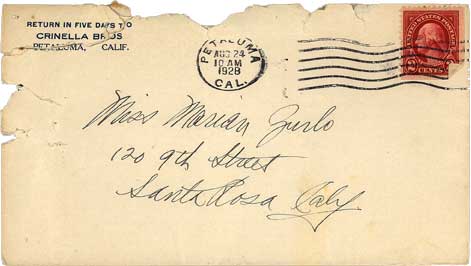 RETURN IN FIVE DAYS TO
CRINELLA BROS
PETALUMA, CALIF.
PETALUMA
AUG 24
10 AM
1928
CAL.
UNITED STATES POSTAGE
2 CENTS 2
Miss Marian Zurlo
120 9th Street
Santa Rosa Calif